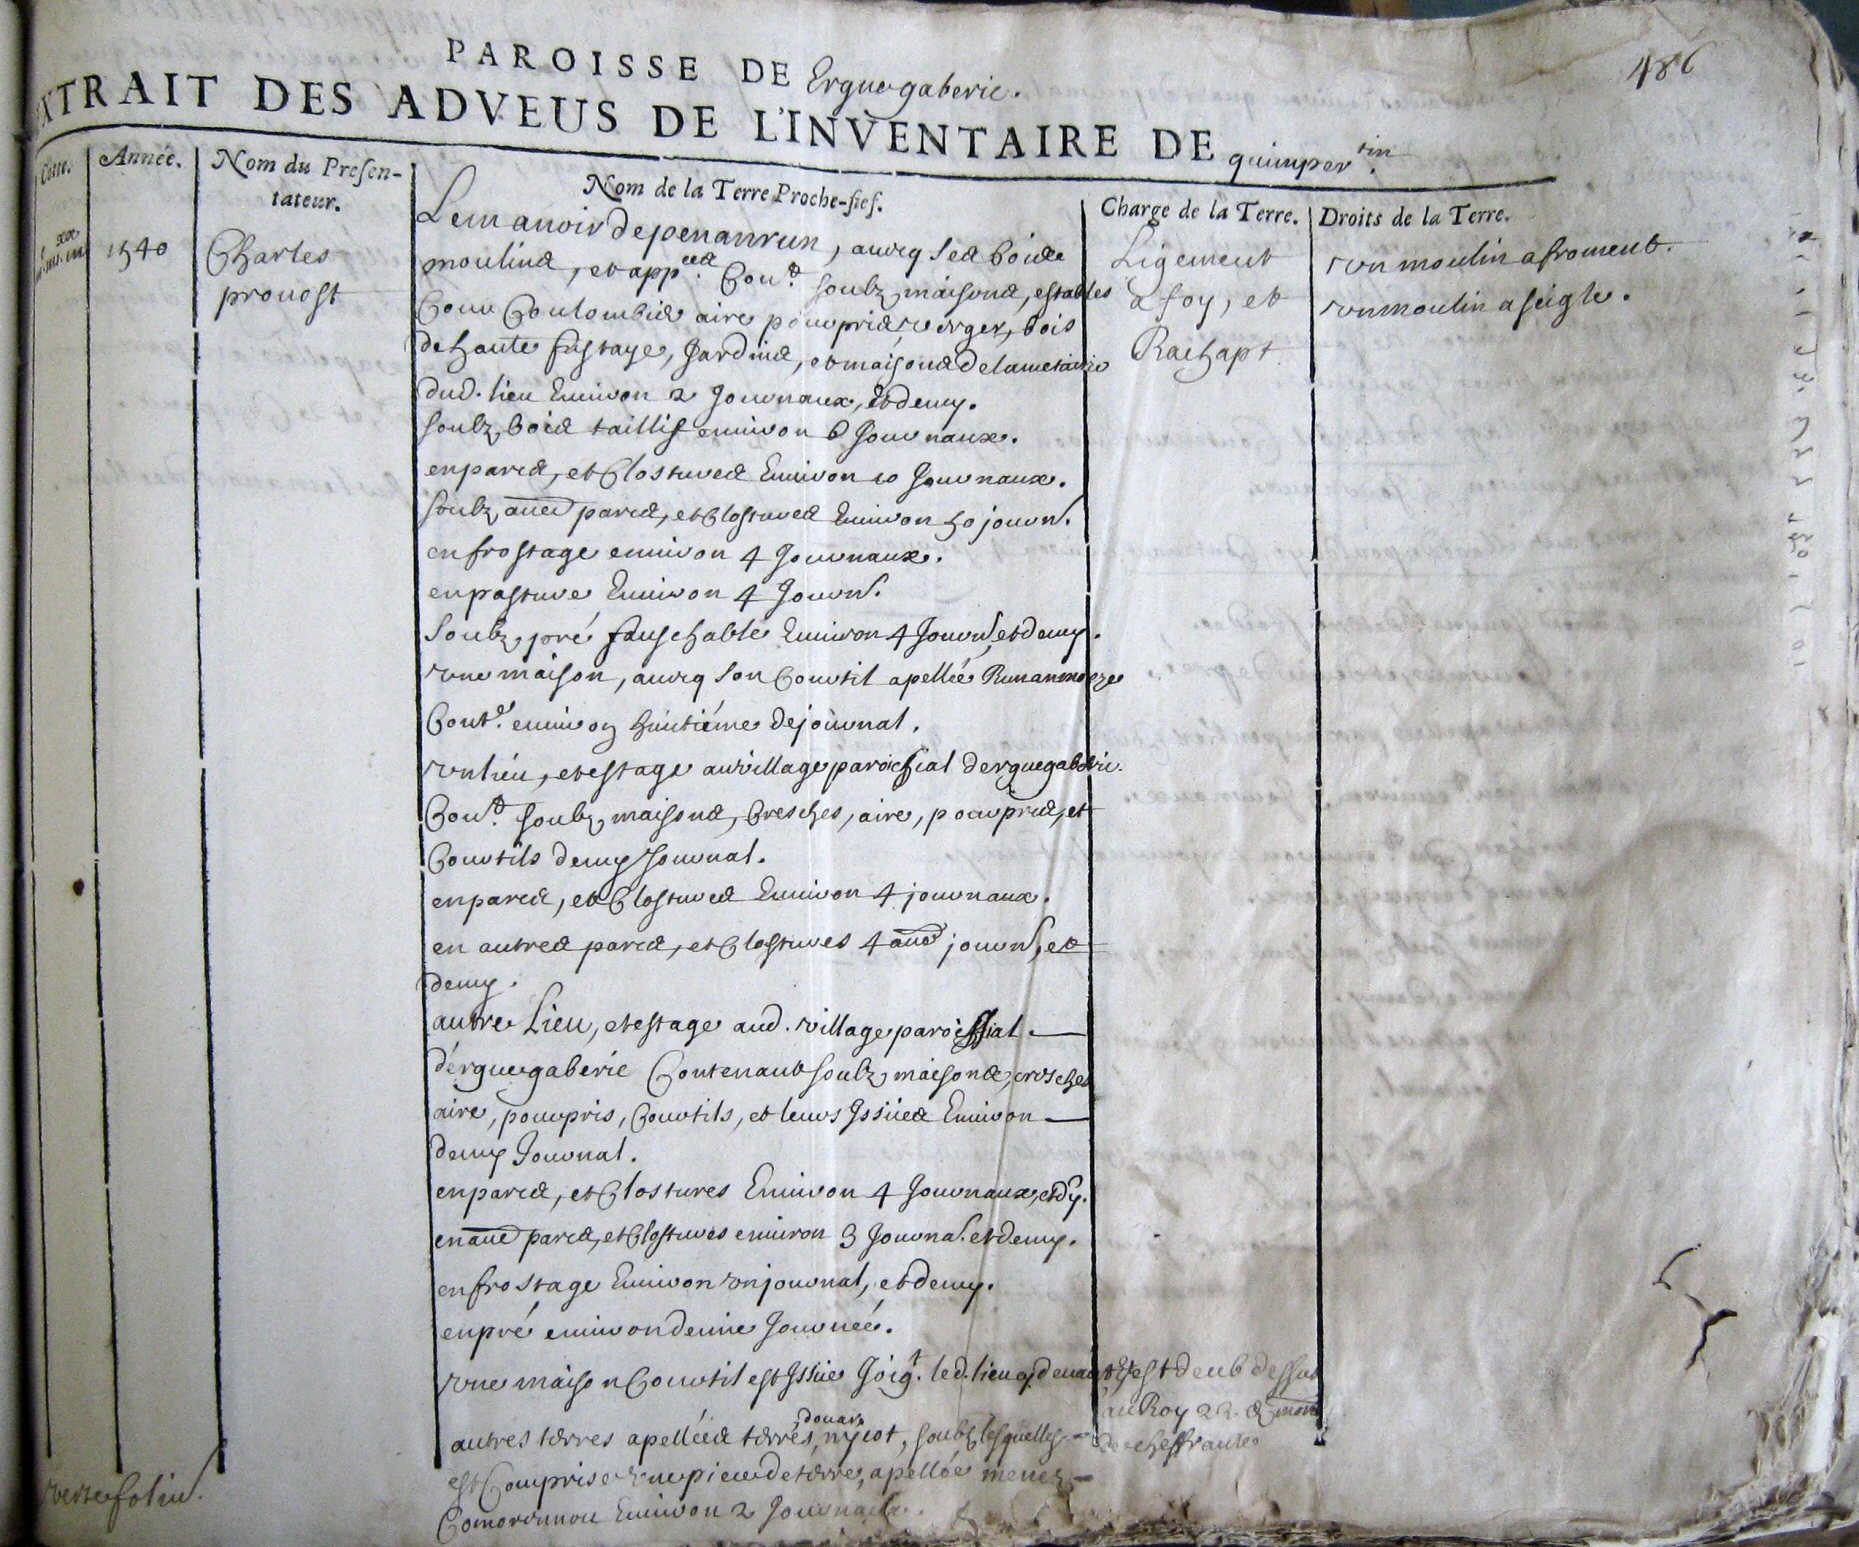 486
PAROISSE DE Erguegaberic.
EXTRAIT DES ADVEUS DE L'INVENTAIRE DE quimper tin.
Cotte.
Année.
Nom du Presen-
tateur.
Nom de la Terre Proche-fief.
Charge de la Terre.
Droits de la Terre.
1540
Charles
prouost
Le manoir de penanrun, aueq ses bois
moulins, et appces. Cont. soubz maisons, estables
Cour Coulombier aire pourpris, verger, bois
de haute fustaye, Jardins, et maisons de la metairie
dud. lieu Enuiron 2 Journaux, et demy.
soubz bois taillis enuiron 6 Journaux.
en parcs, et Clostures Enuiron 10 Journaux.
soubz aues parcs, et Clostures Enuiron 50 journ.
en frostage enuiron 4 Journaux.
en pasture Enuiron 4 Journ.
soubz pré fauschable Enuiron 4 Journ. et demy.
vne maison, aueq son Courtil apellée Runanmoeze
Cont. enuiron huitiéme de journal.
vn lieu, et estage au village paroissial derguegaberic.
Cont. soubz maisons, Cresches, aire, pourpris, et
Courtils demy Journal.
en parcs, et Clostures Enuiron 4 journaux.
en autres parcs, et Clostures 4 aues journ. et
demy.
autre Lieu, et estage aud. village paroissial
d'erguegaberic Contenant soubz maisons, cresches
aire, pourpris, Courtils, et leurs Issües Enuiron
demy Journal.
en parcs, et Clostures Enuiron 4 Journaux, et dy.
en aues parcs, et Clostures enuiron 3 Journa. et demy.
en frostage Enuiron vn journal, et demy.
en pré enuiron demie Journée.
vne maison Courtil est Issüe Joigt. led. lieu cy deuant
autres terres apellées terres, douar nycot, soubz lesquelles
est Comprise vne piece de terre, apellée menez
Comorvunou Enuiron 2 Journaux.
Ligement
a foy, et
Rachapt
et est deub dessus
au Roy 22 s monn.
de cheffrante
vn moulin a froment.
vn moulin a seigle.
verte folio.